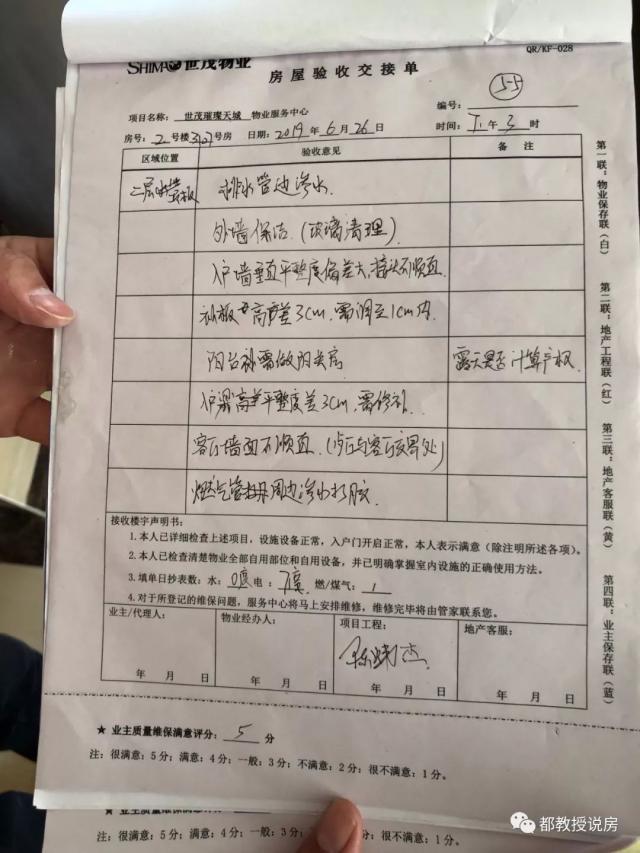 QR/KF-028
SHIMAO 世茂物业
房屋验收交接单
5-5
项目名称：世茂璀璨天城 物业服务中心 编号：
房号：2号楼3127号房 日期：2019年6月26日 时间：下午3时
区域位置 验收意见 备注
二层 排水管边渗水
外墙保洁.(玻璃清理)
入户墙垂直平整度偏差大,接头不顺直
高度差3cm,需调至1cm内.
阳台 需做 露天是否计算产权
入户 平整度差3cm,需修补.
客厅墙面不顺直.(与客厅交界处)
燃气管 周边渗水打胶
接收楼宇声明书：
1.本人已详细检查上述项目，设施设备正常，入户门开启正常，本人表示满意（除注明所述各项）。
2.本人已检查清楚物业全部自用部位和自用设备，并已明确掌握室内设施的正确使用方法。
3.填单日抄表数：水：0度 电：7度 燃/煤气：1
4.对于所登记的维保问题，服务中心将马上安排维修，维修完毕将由管家联系您。
业主/代理人： 物业经办人： 项目工程： 地产客服：
年 月 日 年 月 日 年 月 日 年 月 日
★ 业主质量维保满意评分：5分
注：很满意：5分；满意：4分；一般：3分；不满意：2分；很不满意：1分。
第一联：物业保存联（白）
第二联：地产工程联（红）
第三联：地产客服联（黄）
第四联：业主保存联（蓝）
★ 业主质量维保满意评分
注：很满意：5分；满意：4分；一般：3分
很不满意：1分。
都教授说房